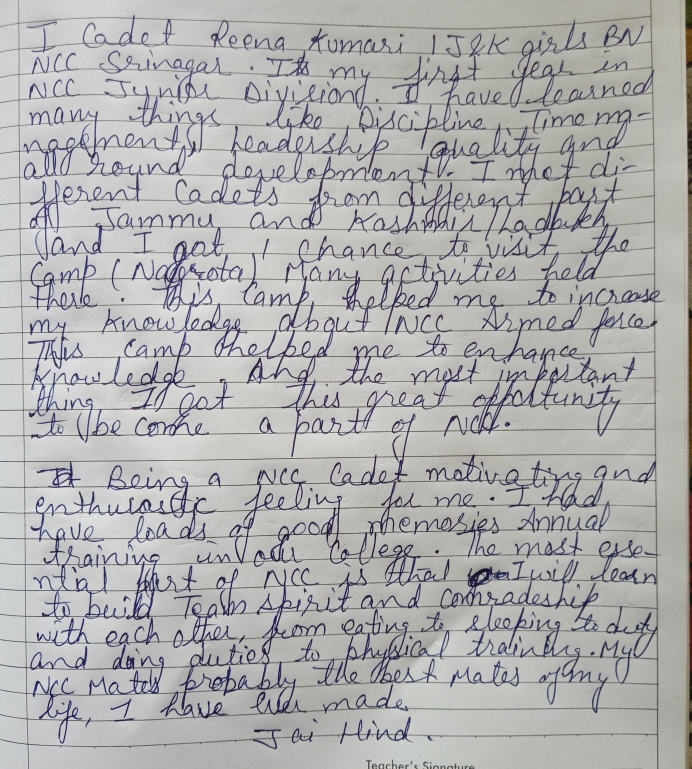 I Cadet Reena Kumari 1 J&K girls BN
NCC Srinagar. Its my first year in
NCC Junior Division. I have learned
many things like Discipline, Time ma-
nagement, leadership quality and
all round development. I met di-
fferent Cadets from different part
of Jammu and Kashmir/Ladakh
and I got 1 chance to visit the
Camp (Nagrota) Many activities held
there. This camp helped me to increase
my knowledge about NCC Armed force.
This camp helped me to enhance
knowledge. And the most important
thing I got this great opportunity
to be come a part of NCC.
Being a NCC Cadet motivating and
enthusastic feeling for me. I had
have loads of good memories Annual
training in our College. The most esse-
ntial part of NCC is that I will learn
to build Team spirit and comradeship
with each other, from eating to sleeping to duty
and doing duties to physical training. My
NCC Mates probably the best Mates of my
life, I have ever made
Jai Hind.
Teacher's Signature